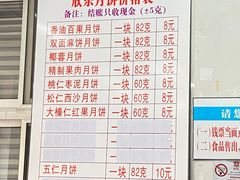 欣乐月饼价格表
备注：结账只收现金（±5克）
香油百果月饼 一块 82克 8元
双面麻饼月饼 一块 82克 8元
椰蓉月饼 一块 82克 8元
精制果肉月饼 一块 82克 8元
桃仁枣泥月饼 一块 60克 8元
松仁西沙月饼 一块 60克 8元
大榛仁红果月饼 一块 60克 8元
五仁月饼 一块 82克 10元
请您
（一）钱票当面
（二）食品售出，